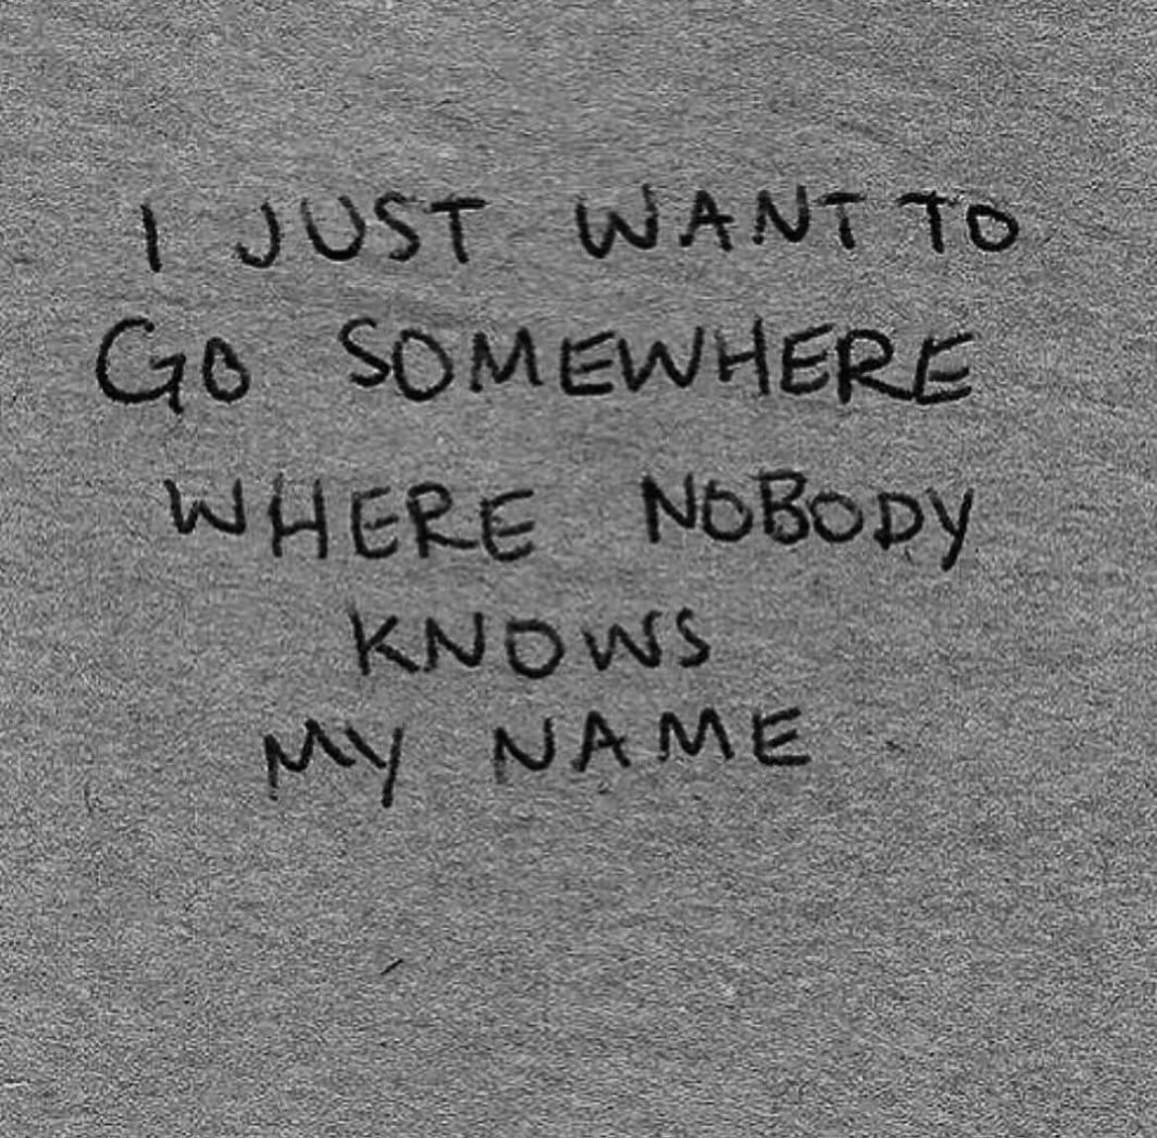 I JUST WANT TO
GO SOMEWHERE
WHERE NOBODY
KNOWS
MY NAME